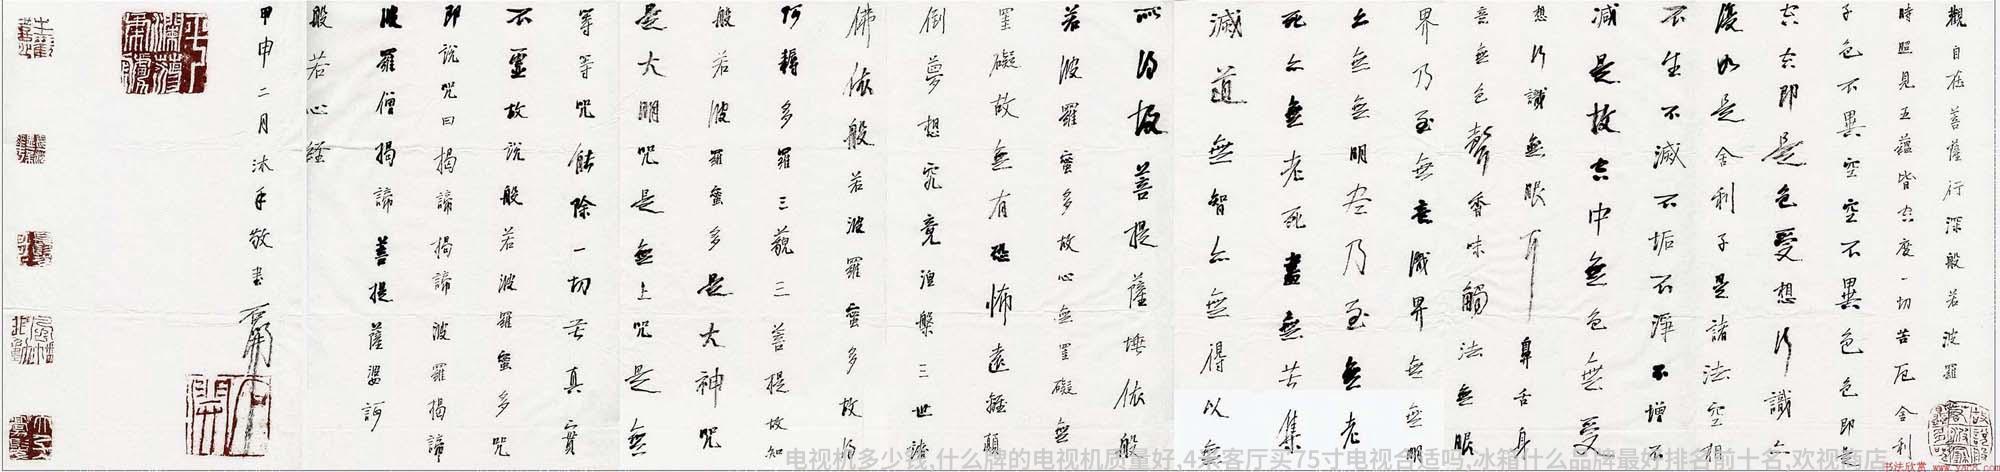 觀自在菩薩行深般若波羅
時照見五蘊皆空度一切苦厄舍利
子色不異空空不異色色即是
空空即是色受想行識亦
復如是舍利子是諸法空相
不生不滅不垢不淨不增不
減是故空中無色無受
想行識無眼耳鼻舌身
意無色聲香味觸法無眼
界乃至無意識界無無明
亦無無明盡乃至無老
死亦無老死盡無苦集
滅道無智亦無得以無
所得故菩提薩埵依般
若波羅蜜多故心無罣礙無
罣礙故無有恐怖遠離顛
倒夢想究竟涅槃三世諸
佛依般若波羅蜜多故得
阿耨多羅三藐三菩提故知
般若波羅蜜多是大神咒
是大明咒是無上咒是無
等等咒能除一切苦真實
不虛故說般若波羅蜜多咒
即說咒曰揭諦揭諦波羅揭諦
波羅僧揭諦菩提薩婆訶
般若心經
甲申二月沐手敬書 石開
石開
电视机多少钱,什么牌的电视机质量好,4米客厅买75寸电视合适吗,冰箱什么品牌最好排名前十名,欢视商店